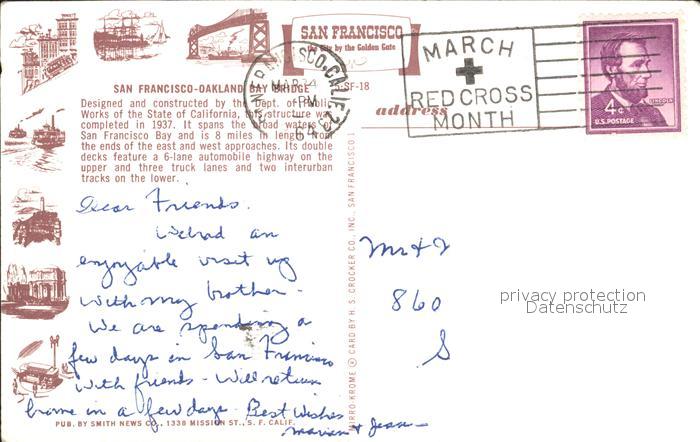 SAN FRANCISCO
the City by the Golden Gate
SAN FRANCISCO, CALIF.
MAR 24
PM
MARCH
RED CROSS
MONTH
4¢
LINCOLN
U.S. POSTAGE
SAN FRANCISCO-OAKLAND BAY BRIDGE
SF-18
address
Designed and constructed by the Dept. of Public
Works of the State of California, this structure was
completed in 1937. It spans the broad waters of
San Francisco Bay and is 8 miles in length from
the ends of the east and west approaches. Its double
decks feature a 6-lane automobile highway on the
upper and three truck lanes and two interurban
tracks on the lower.
Dear Friends.
We had an
enjoyable visit
with my brother.
We are spending a
few days in San Francisco
with friends - Will return
home in a few days Best Wishes
Marian & Jess
Mr &
860
S
MIRRO-KROME ® CARD BY H. S. CROCKER CO., INC., SAN FRANCISCO
privacy protection
Datenschutz
PUB. BY SMITH NEWS CO., 1338 MISSION ST., S. F. CALIF.